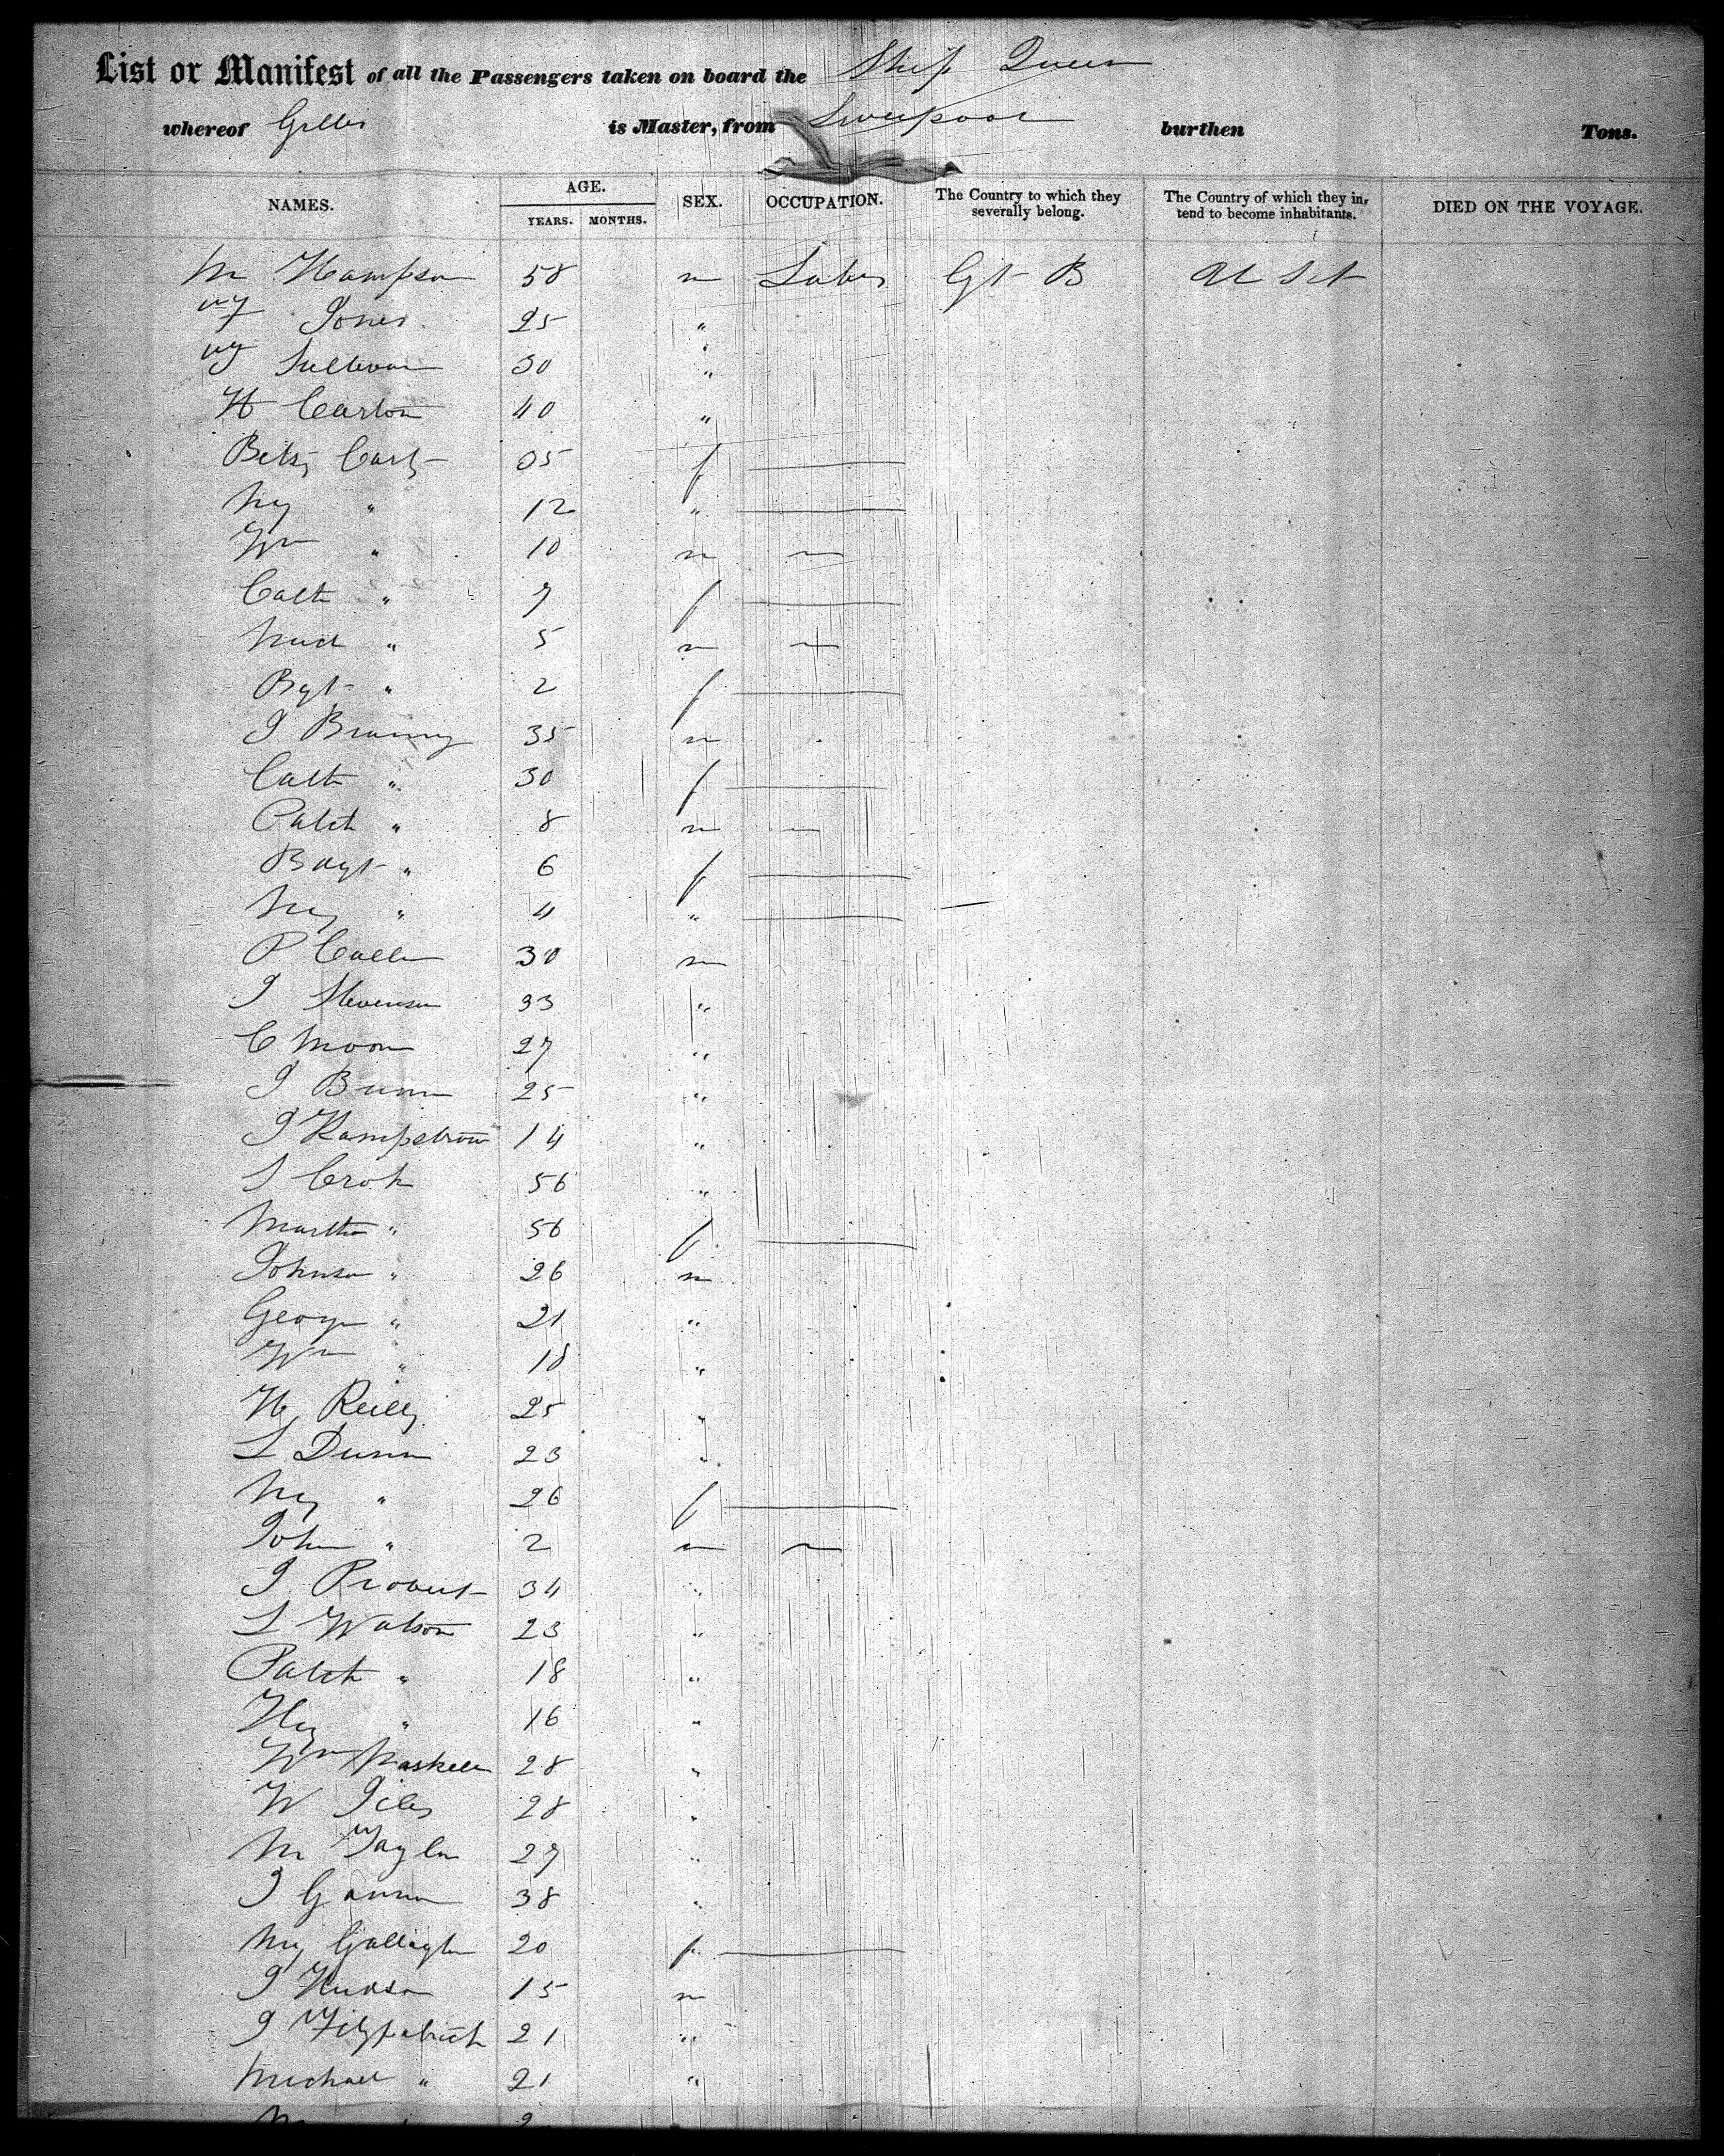 List or Manifest of all the Passengers taken on board the Ship Queen
whereof is Master, from Liverpool burthen Tons.
NAMES. AGE. SEX. OCCUPATION. The Country to which they severally belong. The Country of which they in, tend to become inhabitants. DIED ON THE VOYAGE.
YEARS. MONTHS.
M Hampson 58 m Labr Gt B U St
Jones 25 "
Sullivan 30 "
H Carlton 40 "
Betsy 35 f
My " 12 "
Wm " 10 m
Cath " 7 f
Mich " 5 m
Bgt " 2 f
J 35 m
Cath " 30 f
Patck " 8 m
Bdgt " 6 f
My " 4 "
P 30 m
J Stevenson 33 "
C Moon 27 "
J 25 "
J 14 "
S Crok 56 "
Martha " 56 f
Johnson " 26 m
George " 21 "
Wm " 18 "
H Reilly 25 "
L Dunn 23 "
My " 26 f
John " 2 m
J Probert 34 "
L Watson 23 "
Patck " 18 "
Hy " 16 "
Wm 28 "
W 28 "
M Taylor 27 "
J Gannon 38 "
My Gallagher 20 f
J Hudson 15 m
J Fitzpatrick 21 "
Michael " 21 "